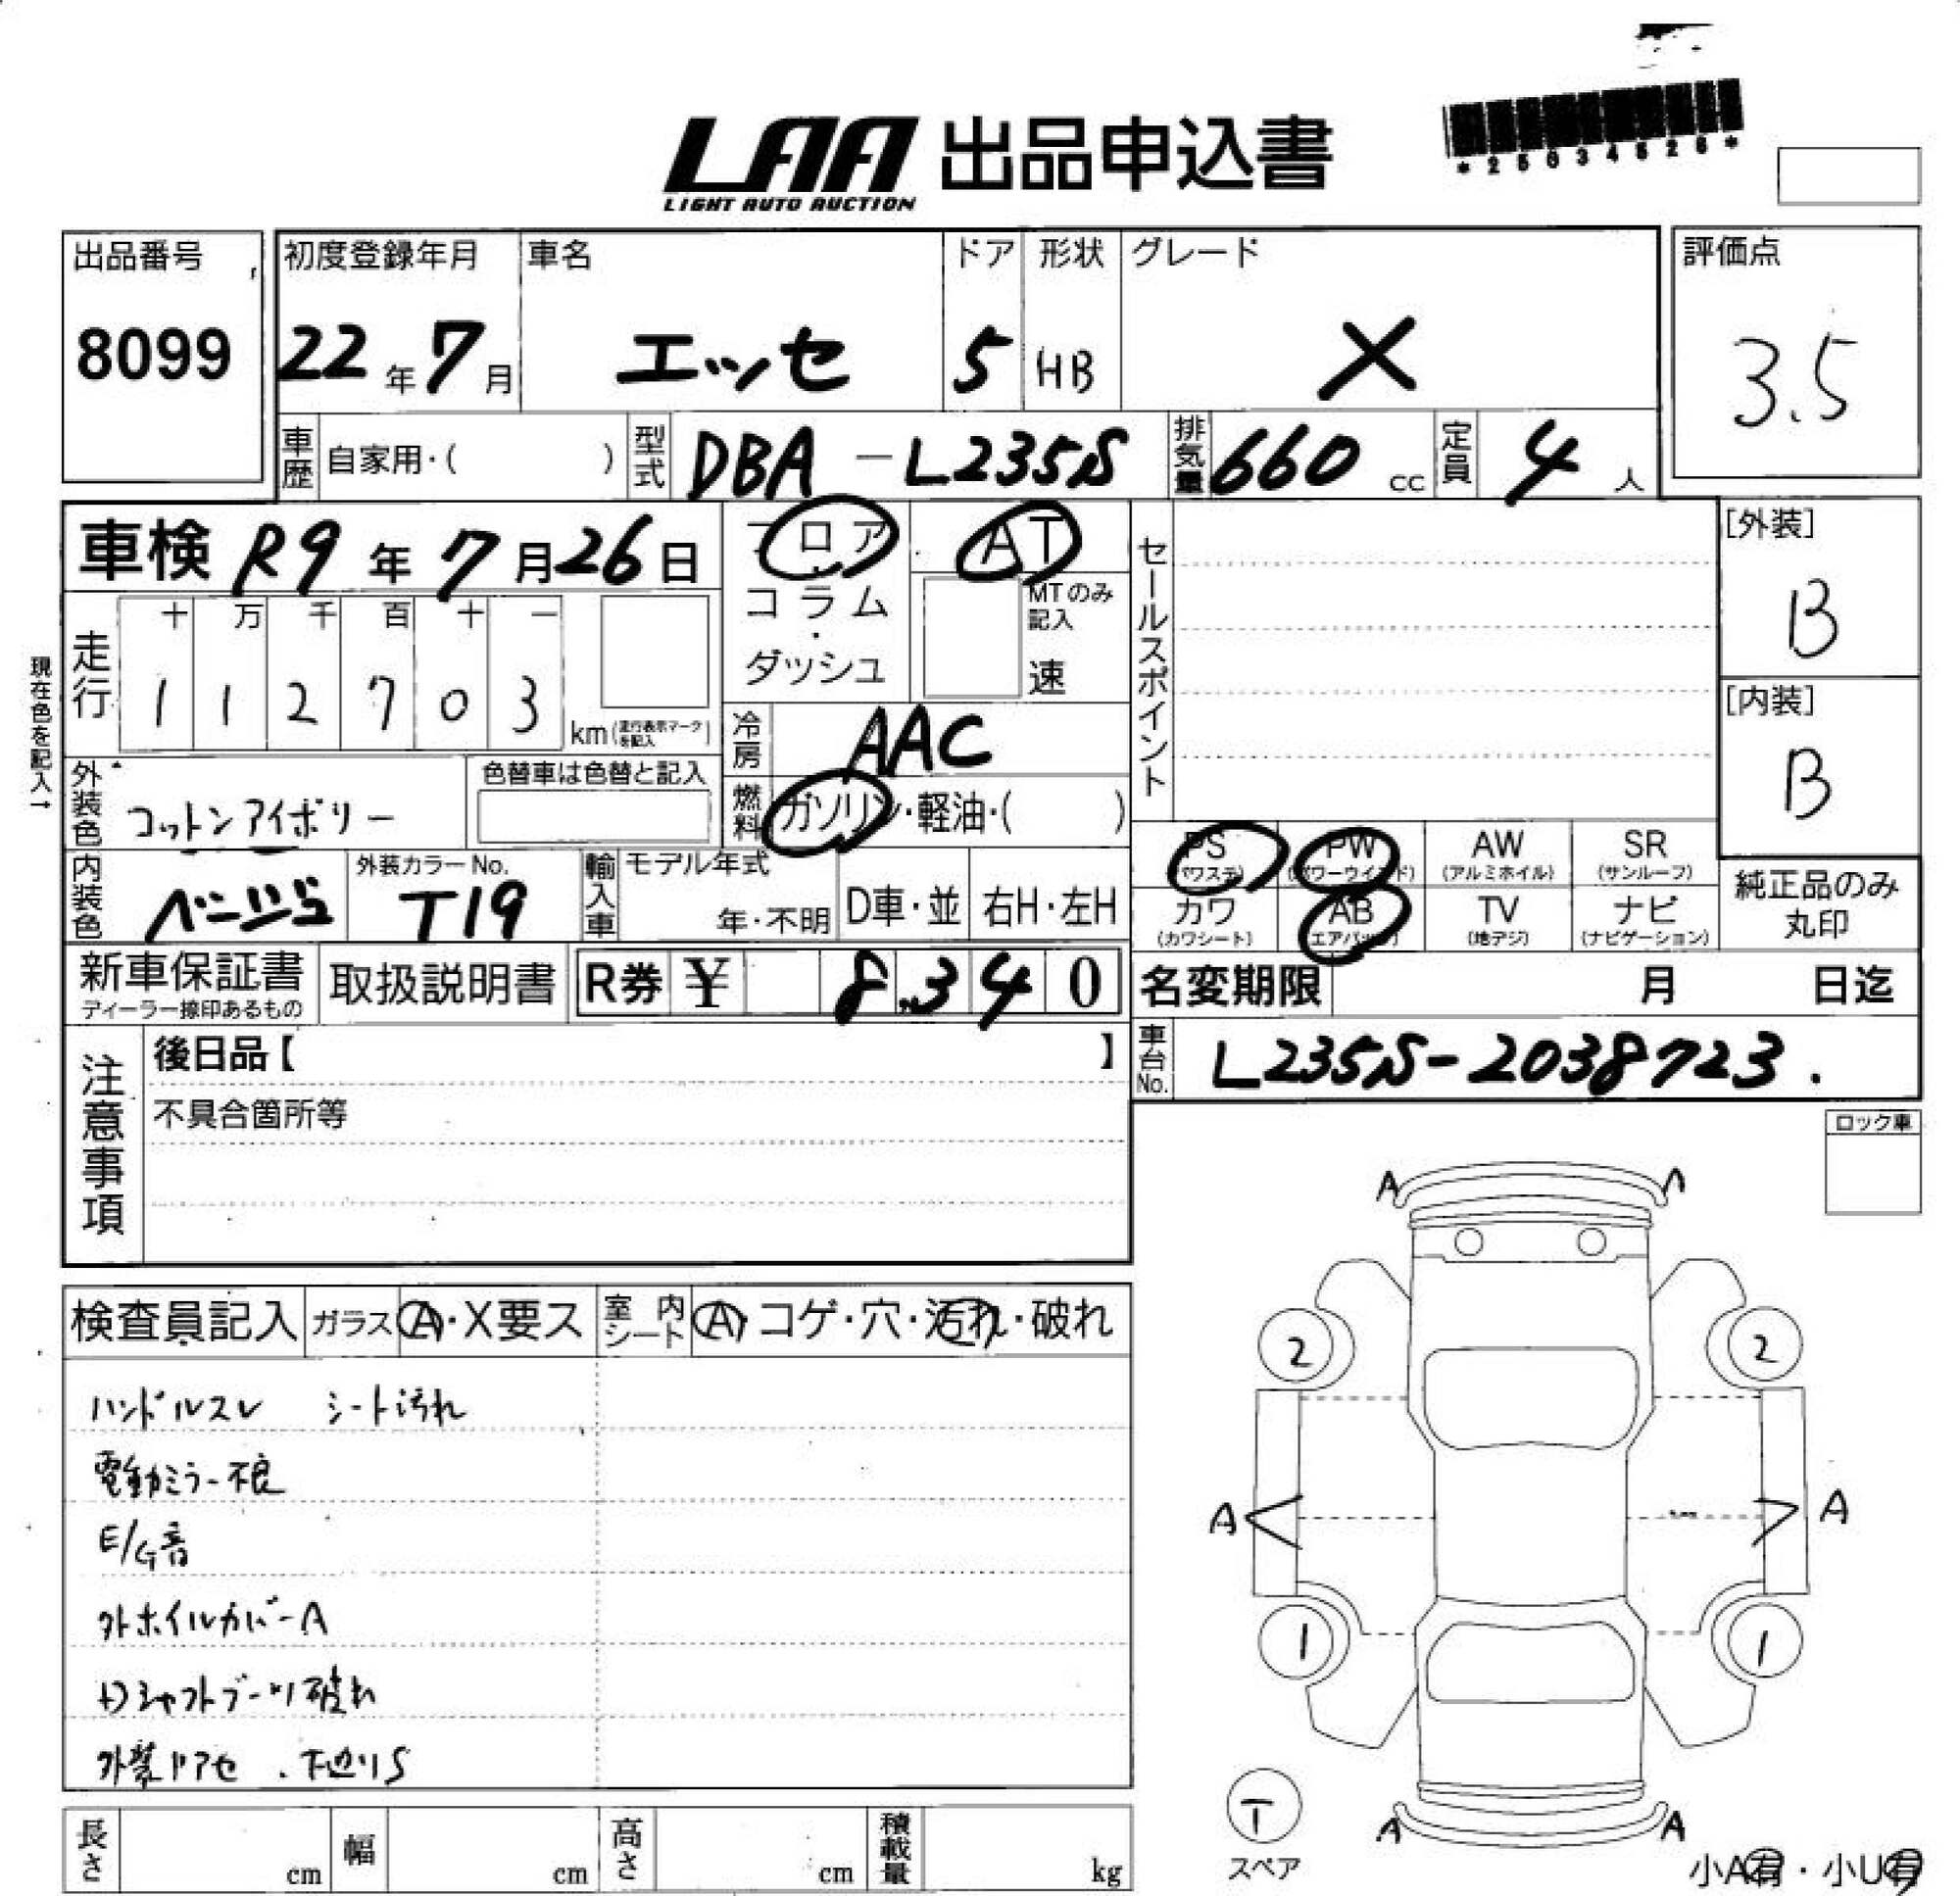 LAA 出品申込書
LIGHT AUTO AUCTION
*25034526*
出品番号
8099
初度登録年月
22年7月
車名
エッセ
ドア
5
形状
HB
グレード
X
評価点
3.5
車歴 自家用・( )
型式 DBA-L235S
排気量 660 cc
定員 4 人
車検 R9年7月26日
フロア・コラム・ダッシュ
AT
MTのみ記入
速
セールスポイント
[外装]
B
[内装]
B
現在色を記入→
走行
十 万 千 百 十 一
1 1 2 7 0 3
km(走行表示マークを記入)
冷房 AAC
燃料 ガソリン・軽油・( )
外装色 コットンアイボリー
色替車は色替と記入
内装色 ベージュ
外装カラーNo.
T19
輸入車 モデル年式
年・不明
D車・並
右H・左H
PS (パワステ)
PW (パワーウインド)
AW (アルミホイル)
SR (サンルーフ)
カワ (カワシート)
AB (エアバッグ)
TV (地デジ)
ナビ (ナビゲーション)
純正品のみ
丸印
新車保証書
ディーラー捺印あるもの
取扱説明書
R券 ¥ 8,340
名変期限 月 日迄
車台No. L235S-2038723.
注意事項
後日品【 】
不具合箇所等
ロック車
検査員記入
ガラス A・X要ス
室内シート A・コゲ・穴・汚れ・破れ
ハンドルスレ シート汚れ
電動ミラー不良
E/G音
外ホイルカバーA
シャフトブーツ破れ
外装 下廻りS
A A
2 2
A A
1 1
A A
T
スペア
小A有・小U有
長さ cm
幅 cm
高さ cm
積載量 kg